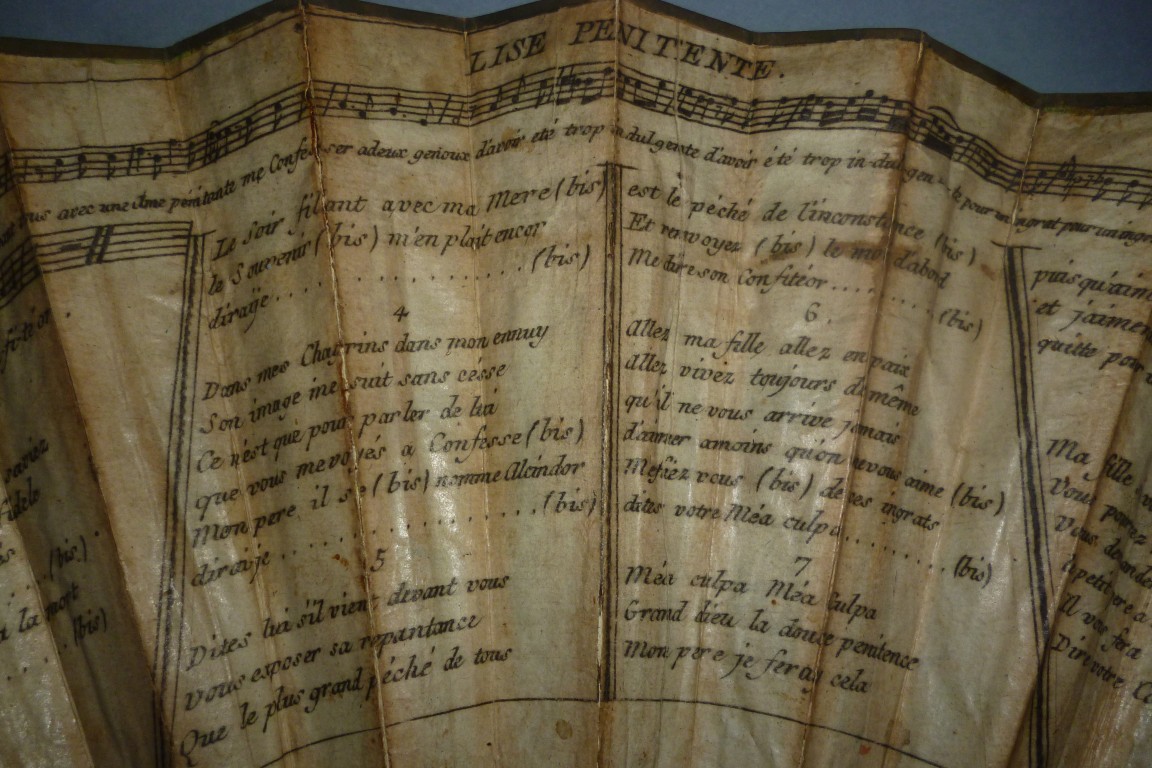 LISE PENITENTE.
vous avec une Ame pénitente me Confesser adeux genoux d'avoir eté trop indulgente d'avoir été trop in-dulgen-te pour un ingrat pour un ingra
Le Soir filant avec ma Mere (bis)
le Souvenir (bis) m'en plait encor
diraije . . . . . . . . . . . . . . . (bis)
4
Dans mes Chagrins dans mon ennuy
Son image me suit sans césse
Ce n'est que pour parler de lui
que vous me voyés a Confesse (bis)
Mon pere il se (bis) nomme Alcindor
diraije . . . . . . . . . . . . . . . (bis)
5
Dites lui s'il vient devant vous
vous exposer sa repantance
Que le plus grand péché de tous
est le péché de l'inconstance (bis)
Et renvoyez (bis) le moi d'abord
Me dire son Confitéor . . . . . . . . . (bis)
6.
Allez ma fille allez en paix
allez vivez toujours de même
qu'il ne vous arrive jamais
d'aimer amoins qu'on ne vous aime (bis)
Mefiez vous (bis) de ses ingrats
dites votre Méa culpa . . . . . . . . . (bis)
7
Méa culpa Méa Culpa
Grand dieu la douce penitence
Mon pere je feray cela
puis qu'aim
et j'aime
quitte pour
Ma fille
Vous pouvez
Vous deman
Il vos fera
Dire votre
fidele
(bis.)
a la mort
(bis)